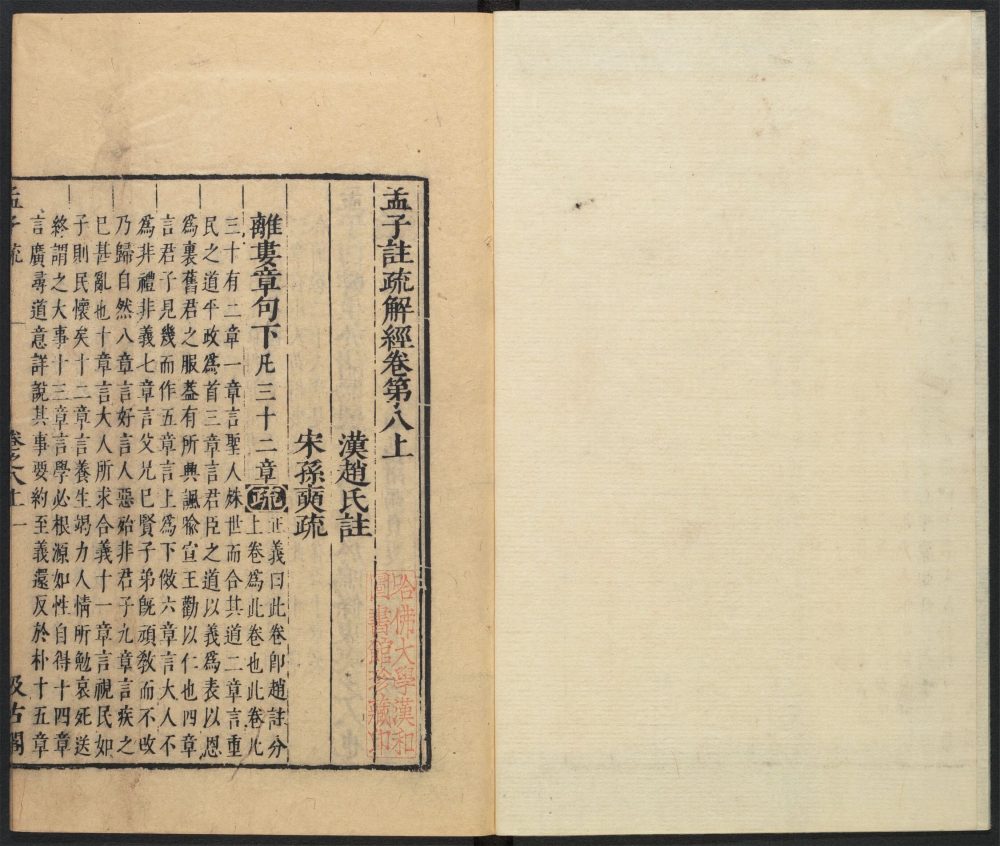 孟子註疏解經卷第八上
漢趙氏註
宋孫奭疏
離婁章句下凡三十二章疏正義曰此卷卽趙註分
上卷爲此卷也此卷凡
三十有二章一章言聖人殊世而合其道二章言重
民之道平政爲首三章言君臣之道以義爲表以恩
爲裏舊君之服葢有所興諷喩宣王勸以仁也四章
言君子見幾而作五章言上爲下倣六章言大人不
爲非禮非義七章言父兄已賢子弟旣頑敎而不改
乃歸自然八章言好言人惡殆非君子九章言疾之
已甚亂也十章言大人所求合義十一章言視民如
子則民懷矣十二章言養生竭力人情所勉哀死送
終謂之大事十三章言學必根源如性自得十四章
言廣尋道意詳說其事要約至義還反於朴十五章
孟子疏 卷之八上 一 汲古閣
哈佛大學漢和
圖書館珍藏印